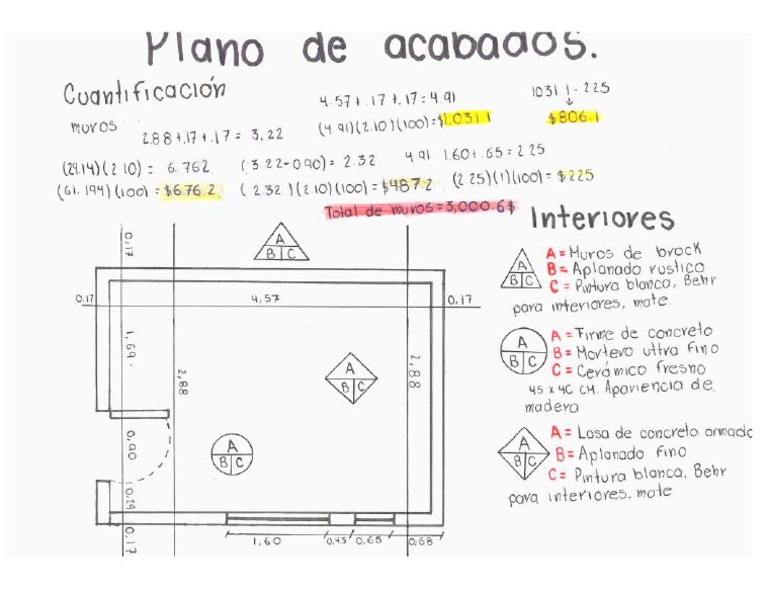 Plano de acabados.
Cuantificación
muros
2.88+.17+.17 = 3.22
4.57+.17+.17 = 4.91
1031.1 - 225
(4.91)(2.10)(100) = $1,031.1
$806.1
(24.14)(2.10) = 6.762
(3.22-0.90) = 2.32
4.91
1.60+.65 = 2.25
(61.194)(100) = $676.2
(2.32)(2.10)(100) = $487.2
(2.25)(1)(100) = $225
Total de muros = 3,000.6$
Interiores
A
B C
A = Muros de brock
B = Aplanado rustico
C = Pintura blanca, Behr
para interiores, mate
A
B C
A = Firme de concreto
B = Mortero ultra fino
C = Cerámico fresno
45 x 40 CM. Apariencia de
madera
A
B C
A = Losa de concreto armado
B = Aplanado fino
C = Pintura blanca, Behr
para interiores. mate
A
B C
0.17
0.17
4,57
0.17
1,69
2,88
2,88
A
B C
0,90
A
B C
0,29
0.17
1,60
0,45
0,65
0,68